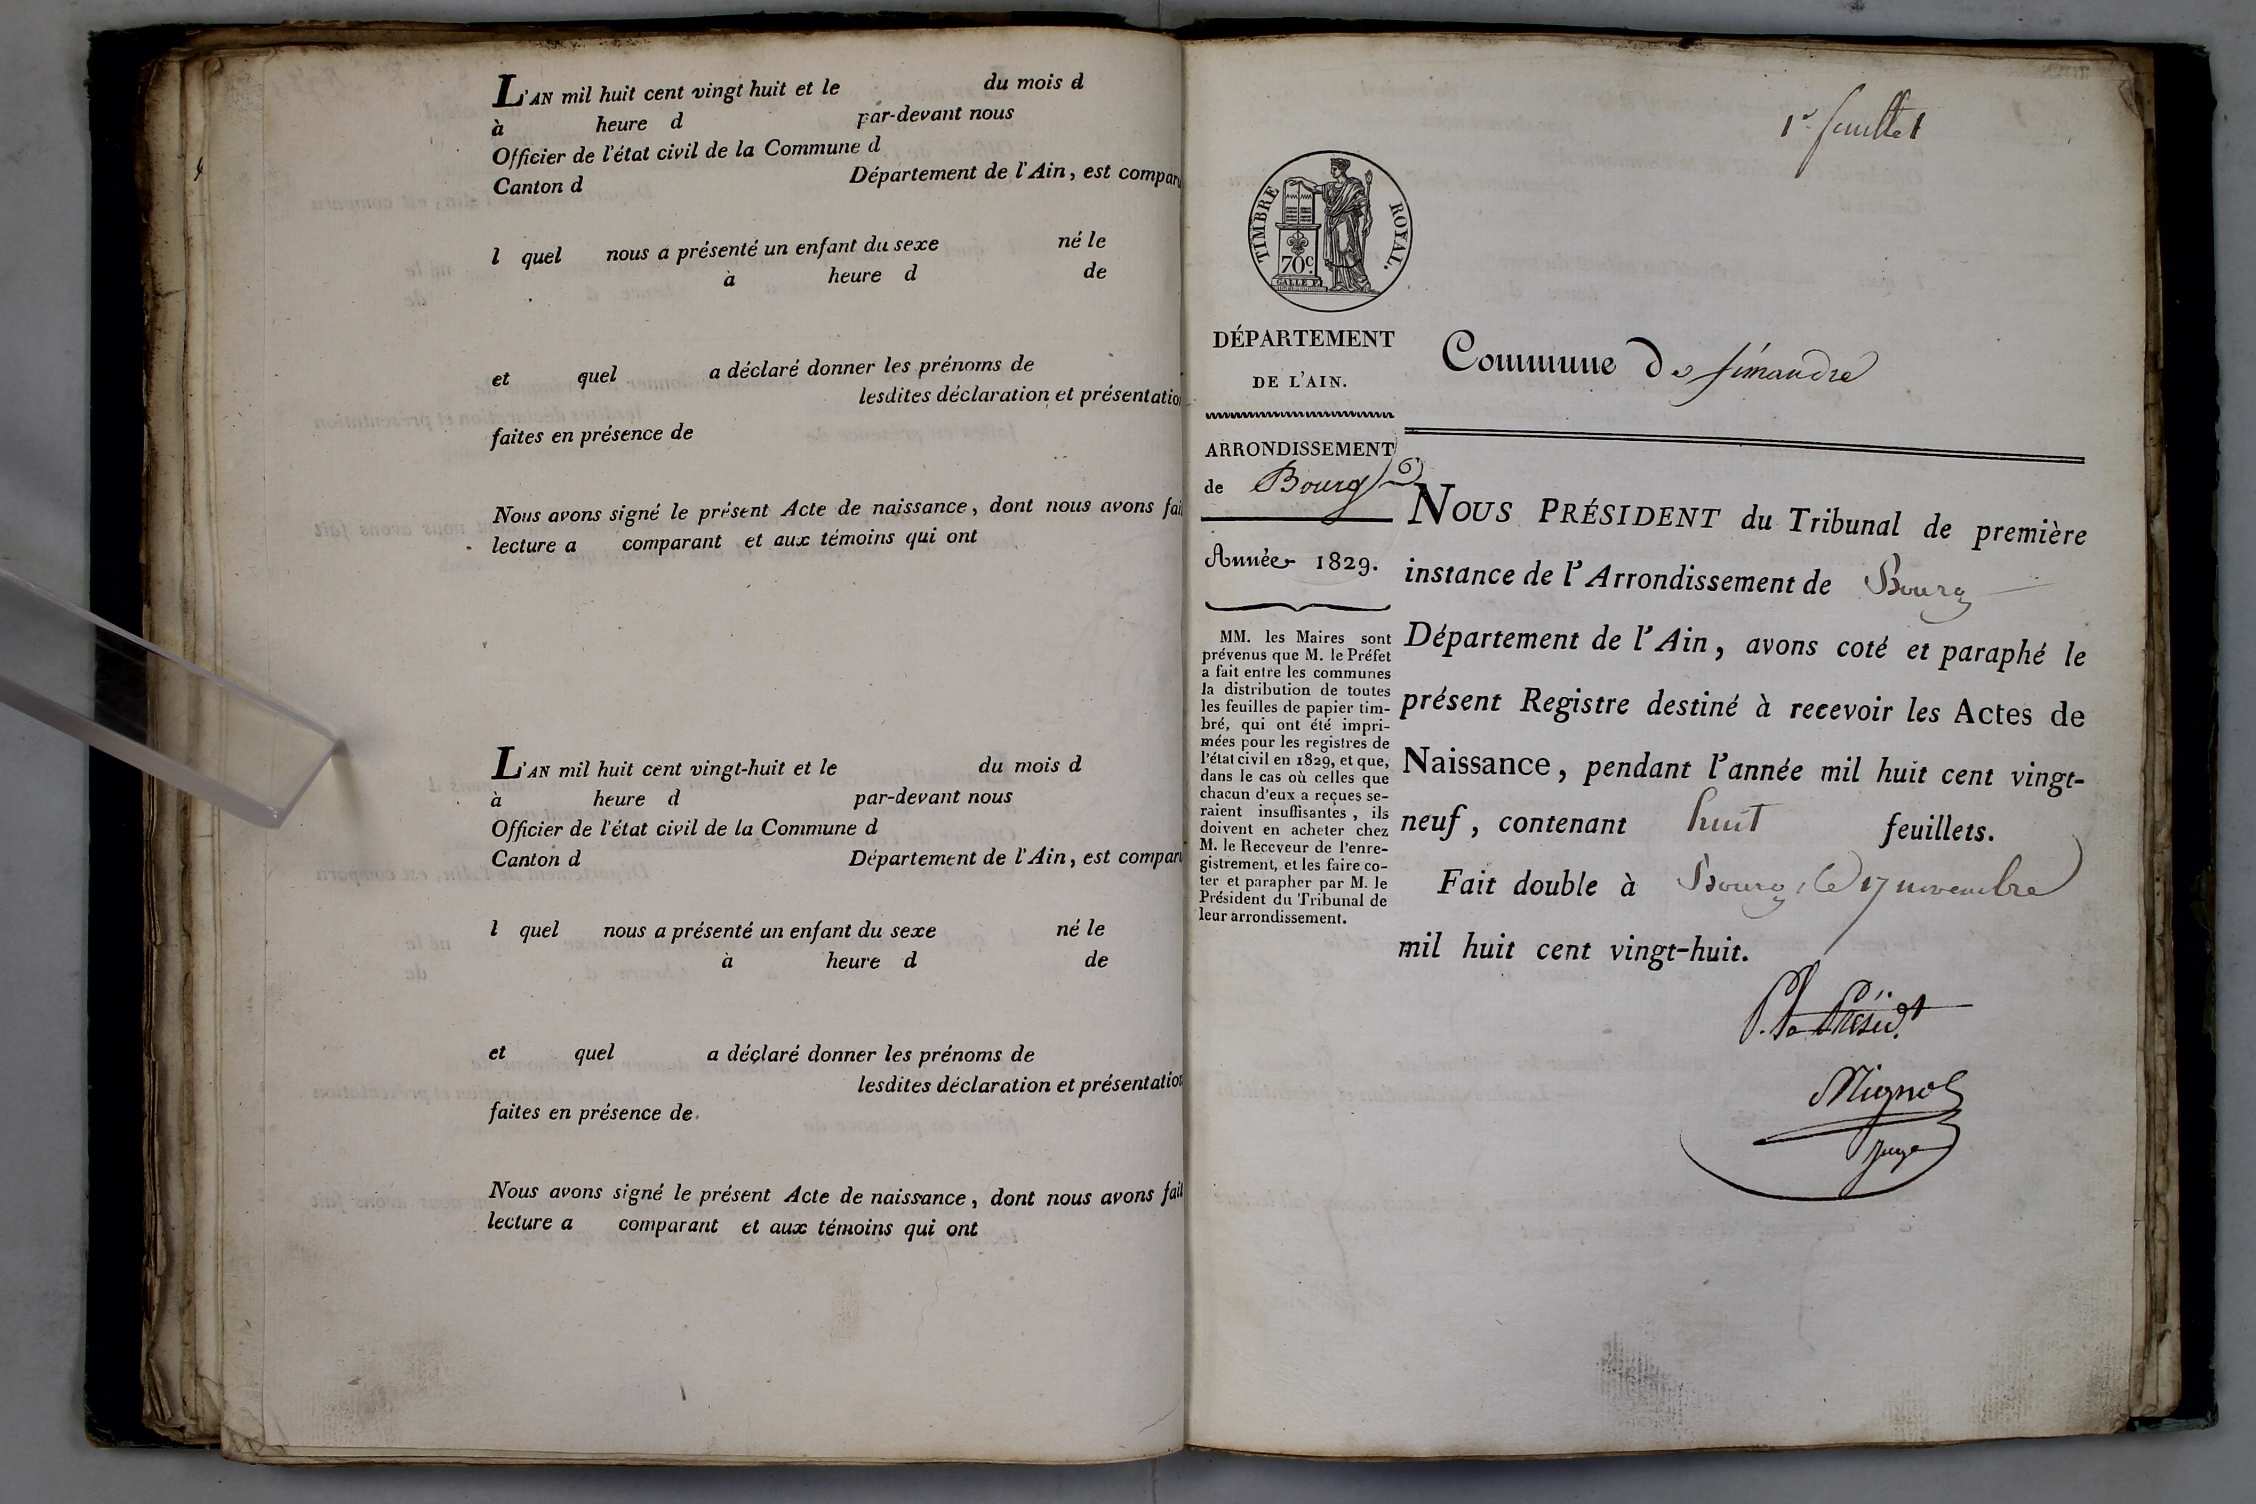 L'AN mil huit cent vingt huit et le du mois d
à heure d par-devant nous
Officier de l'état civil de la Commune d
Canton d Département de l'Ain, est comparu
l quel nous a présenté un enfant du sexe né le
à heure d de
et quel a déclaré donner les prénoms de
lesdites déclaration et présentation
faites en présence de
Nous avons signé le présent Acte de naissance, dont nous avons fait
lecture a comparant et aux témoins qui ont
L'AN mil huit cent vingt-huit et le du mois d
à heure d par-devant nous
Officier de l'état civil de la Commune d
Canton d Département de l'Ain, est comparu
l quel nous a présenté un enfant du sexe né le
à heure d de
et quel a déclaré donner les prénoms de
lesdites déclaration et présentation
faites en présence de
Nous avons signé le présent Acte de naissance, dont nous avons fait
lecture a comparant et aux témoins qui ont
1r feuillet
TIMBRE ROYAL.
70c.
DÉPARTEMENT
DE L'AIN.
ARRONDISSEMENT
de Bourg
Année 1829.
MM. les Maires sont
prévenus que M. le Préfet
a fait entre les communes
la distribution de toutes
les feuilles de papier tim-
bré, qui ont été impri-
mées pour les registres de
l'état civil en 1829, et que,
dans le cas où celles que
chacun d'eux a reçues se-
raient insuffisantes, ils
doivent en acheter chez
M. le Receveur de l'enre-
gistrement, et les faire co-
ter et parapher par M. le
Président du Tribunal de
leur arrondissement.
Commune De Simandre
NOUS PRÉSIDENT du Tribunal de première
instance de l'Arrondissement de Bourg
Département de l'Ain, avons coté et paraphé le
présent Registre destiné à recevoir les Actes de
Naissance, pendant l'année mil huit cent vingt-
neuf, contenant huit feuillets.
Fait double à Bourg, le 17 novembre
mil huit cent vingt-huit.
P. le Présid.t
Mignot
juge